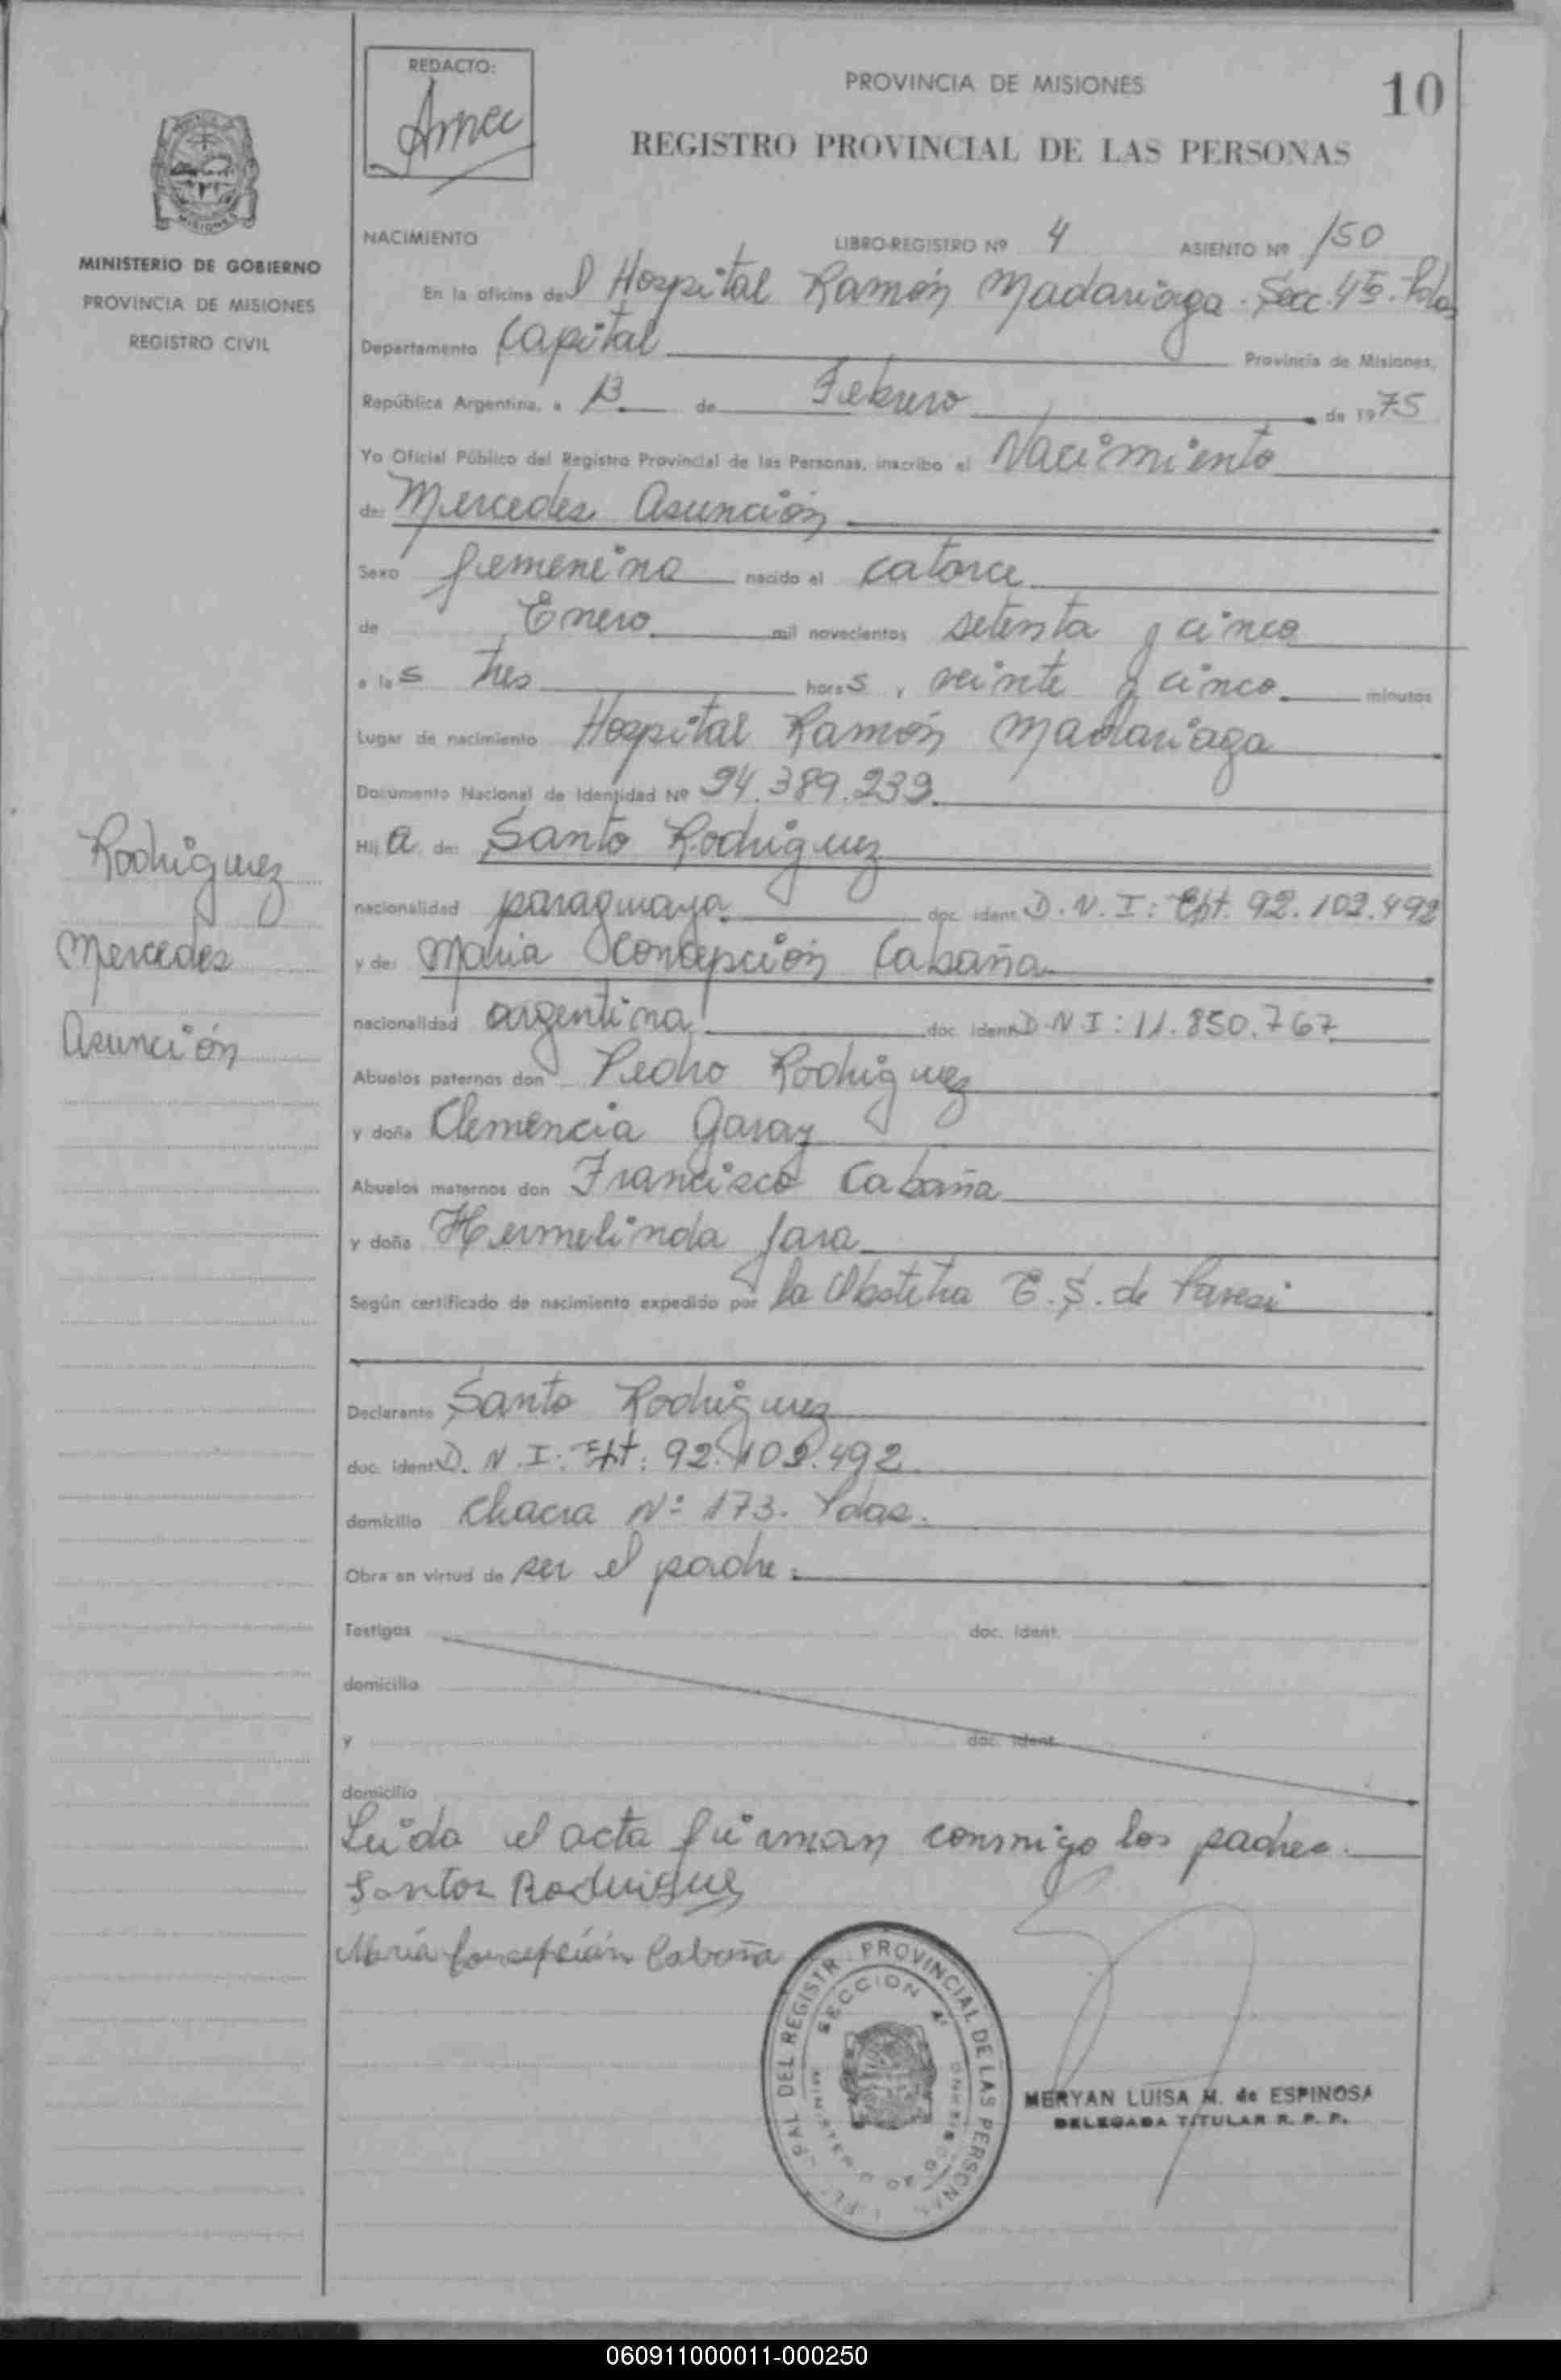 REDACTO:
PROVINCIA DE MISIONES
10
REGISTRO PROVINCIAL DE LAS PERSONAS
MISIONES
MINISTERIO DE GOBIERNO
PROVINCIA DE MISIONES
REGISTRO CIVIL
NACIMIENTO LIBRO-REGISTRO Nº 4 ASIENTO Nº 150
En la oficina del Hospital Ramón Madariaga. Secc. 4ta. Pdas
Departamento Capital Provincia de Misiones,
República Argentina, a 13 de Febrero de 1975
Yo Oficial Público del Registro Provincial de las Personas, inscribo el Nacimiento
de: Mercedes Asunción
Sexo femenino nacido el catorce
de Enero mil novecientos setenta y cinco
a las tres horas, veinte y cinco minutos
Lugar de nacimiento Hospital Ramón Madariaga
Documento Nacional de Identidad Nº 24.389.239.
Hija de: Santo Rodriguez
nacionalidad paraguaya doc. ident. D.N.I: Ext. 92.102.492
y de: Maria Concepción Cabaña
nacionalidad argentina doc. ident. D.N.I: 11.850.767
Abuelos paternos don Pedro Rodriguez
y doña Clemencia Garay
Abuelos maternos don Francisco Cabaña
y doña Hermelinda Jara
Según certificado de nacimiento expedido por la Obstetra E.S. de Paresi
Declarante Santo Rodriguez
doc. ident. D.N.I: Ext: 92.102.492
domicilio Chacra Nº 173. Pdas.
Obra en virtud de ser el padre.
Testigos doc. ident.
domicilio
y doc. ident.
domicilio
Leída el acta firman conmigo los padres.
Santos Rodrigues
María Concepción Cabaña
Rodriguez
Mercedes
Asunción
DEL REGISTR. PROVINCIAL DE LAS PERSONAS
SECCION 4ª
MERYAN LUISA M. de ESPINOSA
DELEGADA TITULAR R. P. P.
060911000011-000250